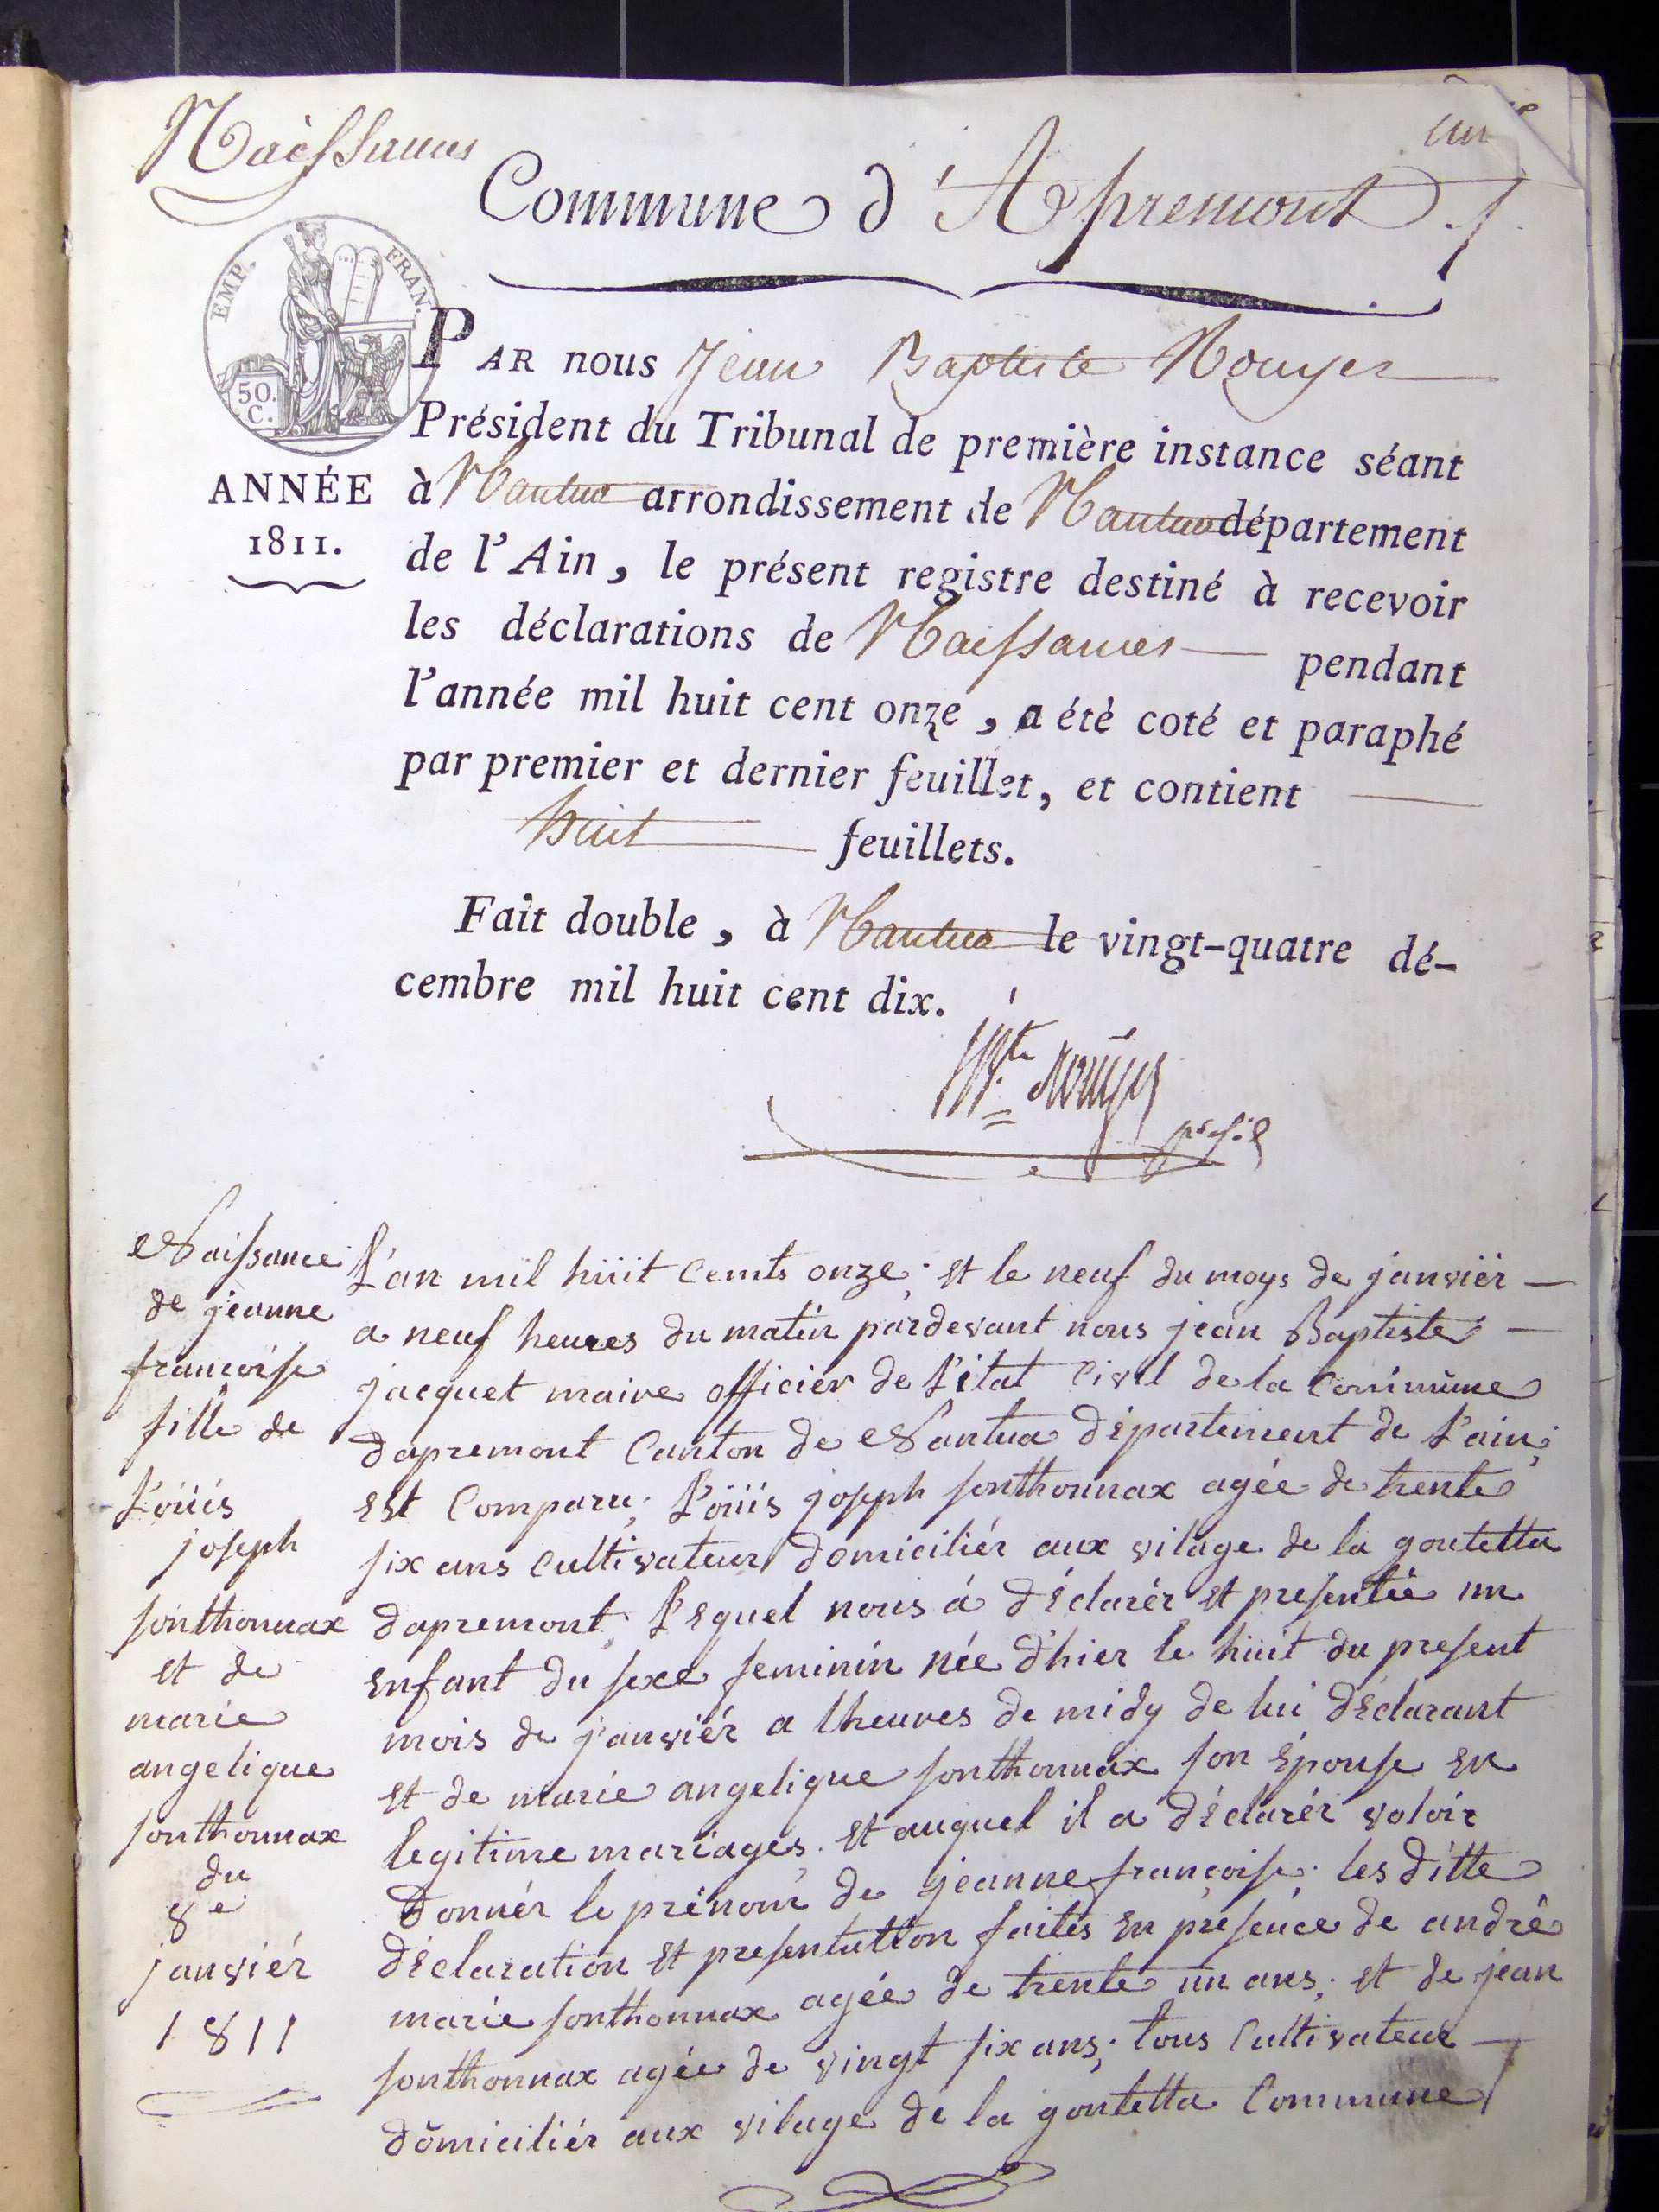 Naissances
Commune d'Apremont
EMP. FRAN.
50. C.
ANNÉE
1811.
PAR nous Jean Baptiste Rouyer
Président du Tribunal de première instance séant
à Nantua arrondissement de Nantua département
de l'Ain, le présent registre destiné à recevoir
les déclarations de Naissances pendant
l'année mil huit cent onze, a été coté et paraphé
par premier et dernier feuillet, et contient
huit feuillets.
Fait double, à Nantua le vingt-quatre dé-
cembre mil huit cent dix.
Naissance
de jeanne
francoise
fille de
Loüis
joseph
sonthonnax
et de
marie
angelique
sonthonnax
du
8e
janviér
1811
L'an mil hüit cents onze; et le neuf du moys de janviér
a neuf heures du matin pardevant nous jean Baptiste
jacquet maire officier de l'état Civil de la Commune
dapremont Canton de Nantua département de l'ain;
est Comparu; Loüis joseph sonthonnax agée de trente
six ans Cultivateur domiciliér aux vilage de la goutetta
dapremont; Lequel nous á déclarér et presentée un
enfant du sexe feminin née d'hier le hüit du present
mois de janviér a lheures de midy de lui déclarant
et de marie angelique sonthonnax son épouse en
legitime mariages. et auquel il a déclarér voloir
donnér le prénom de jeanne françoise; les ditte
déclaration et presentattion faites en présence de andré
marie sonthonnax agée de trente un ans; et de jean
sonthonnax agée de vingt six ans; tous Cultivateur
domiciliér aux vilage de la goutetta Commune